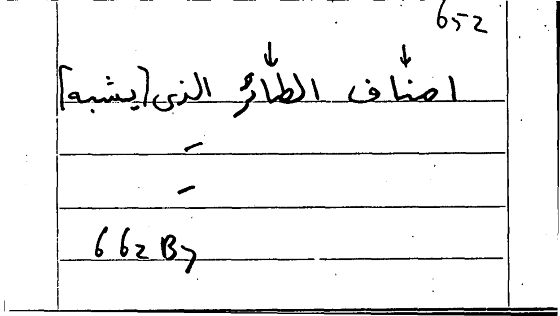 652
اصناف الطائر الذى [يشبه]
662 B7